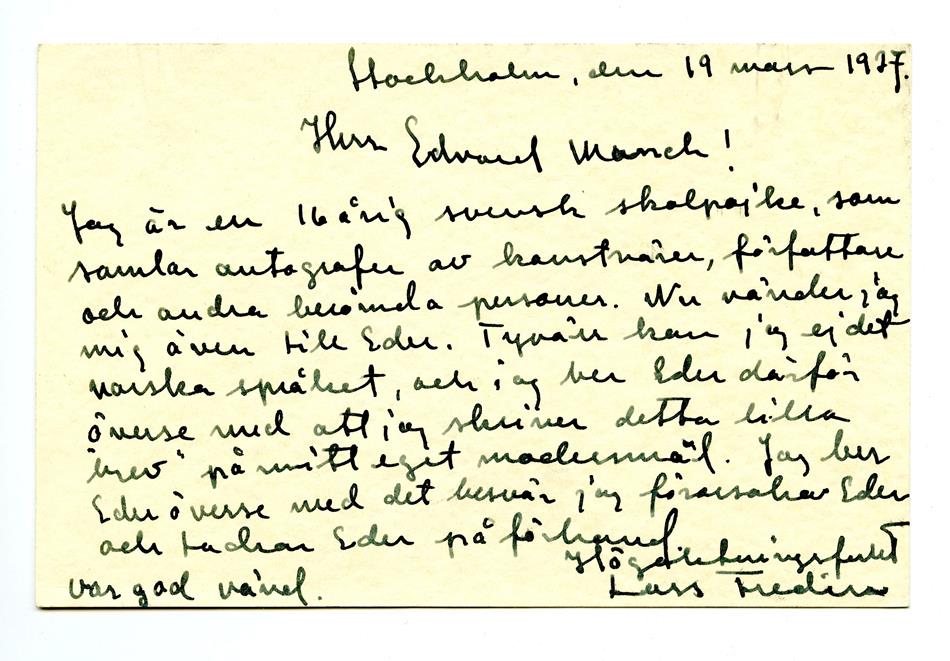 Stockholm, den 19 mars 1937.
Herr Edvard Munch!
Jag är en 16 årig svensk skolpojke, som
samlar autografer av konstnärer, författare
och andra berömda personer. Nu vänder jag
mig även till Eder. Tyvärr kan jag ej det
norska språket, och jag ber Eder därför
överse med att jag skriver detta lilla
"brev" på mitt eget modersmål. Jag ber
Eder överse med det besvär jag förorsakar Eder
och tackar Eder på förhand.
Högaktningsfullt
var god vänd.
Lars Fredin